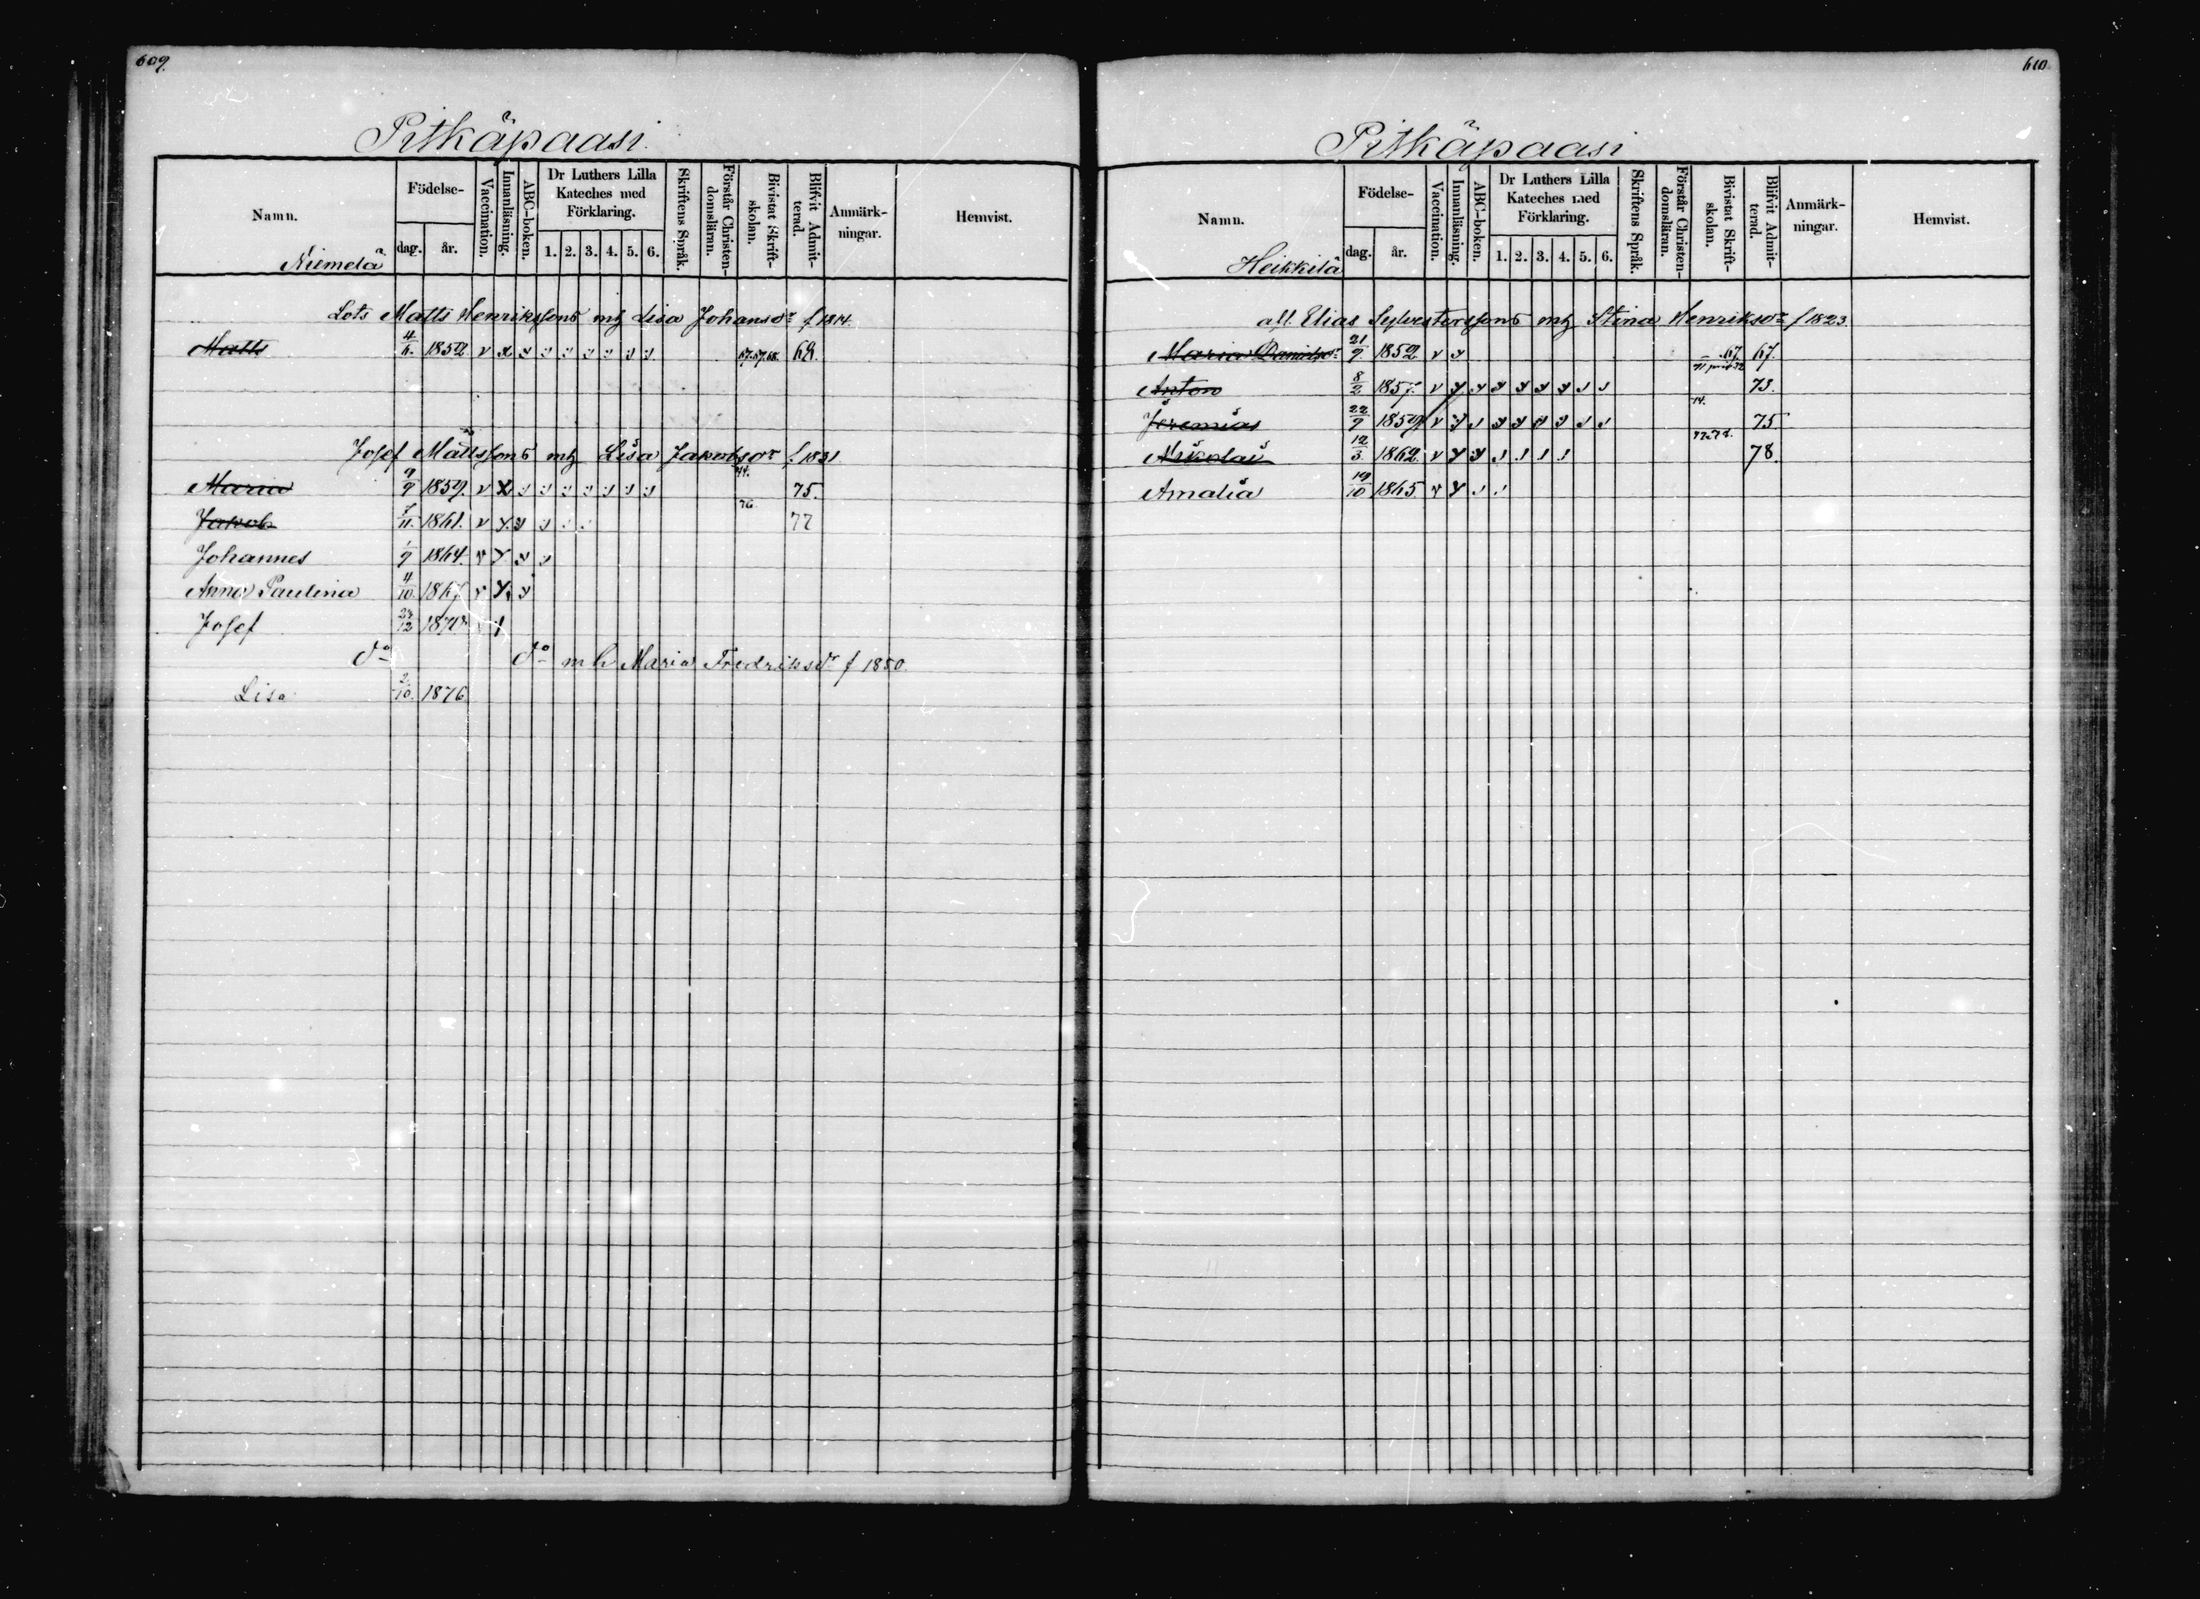 609.
Pitkäpaasi.
Namn.
Födelse-
dag. år.
Vaccination.
Innanläsning.
ABC-boken.
Dr Luthers Lilla Kateches med Förklaring.
1. 2. 3. 4. 5. 6.
Skriftens Språk.
Förstår Christen-domsläran.
Bivistat Skrift-skolan.
Blifvit Admit-terad.
Anmärk-ningar.
Hemvist.
Niemelä
Lots Matts Henrikssons mh Lisa Johansdr f 1814.
Matts 4/6. 1852 v x 67.68. 68.
Josef Mattssons mh Lisa Jakobsdr f. 1831
Maria 9/9 1859. v x 74. 75.
Jakob 7/11. 1861. v 76. 77
Johannes 1/9 1864. v
Anna Paulina 4/10 1867. v
Josef 12
do do mh Maria Fredriksdr f 1850.
Lisa 2/10. 1876
610
Pitkäpaasi
Namn.
Födelse-
dag. år.
Vaccination.
Innanläsning.
ABC-boken.
Dr Luthers Lilla Kateches med Förklaring.
1. 2. 3. 4. 5. 6.
Skriftens Språk.
Förstår Christen-domsläran.
Bivistat Skrift-skolan.
Blifvit Admit-terad.
Anmärk-ningar.
Hemvist.
Heikkilä
all. Elias Sylvesterssons mh Stina Henriksdr f 1823.
Maria Danielsdr 21/9. 1852 v 67. 67.
Anton 8/2 1857. v 73.
Jeremias 22/9 1859. v 74. 75
Nikolai 12/3 1862. v 77.78. 78.
Amalia 19/10 1865 v